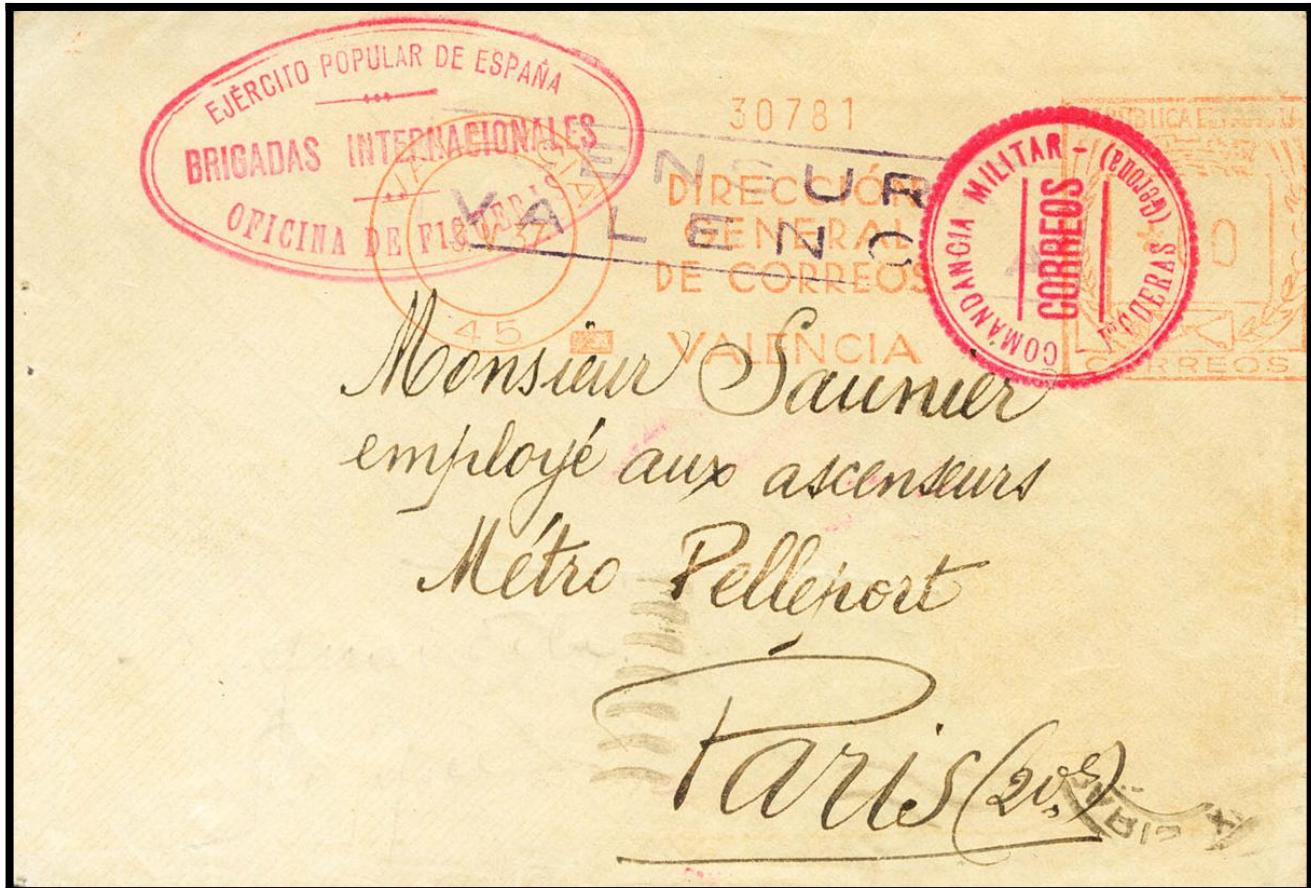 EJÉRCITO POPULAR DE ESPAÑA
BRIGADAS INTERNACIONALES
OFICINA DE FIGUERAS
VALENCIA
45
30781
DIRECCIÓN
GENERAL
DE CORREOS
VALENCIA
CENSUR
VALENC
COMANDANCIA MILITAR -
CORREOS
FIGUERAS (Gerona)
REPUBLICA ESPAÑOLA
0
CORREOS
Monsieur Saunier
employé aux ascenseurs
Métro Pelleport
Paris (20e)